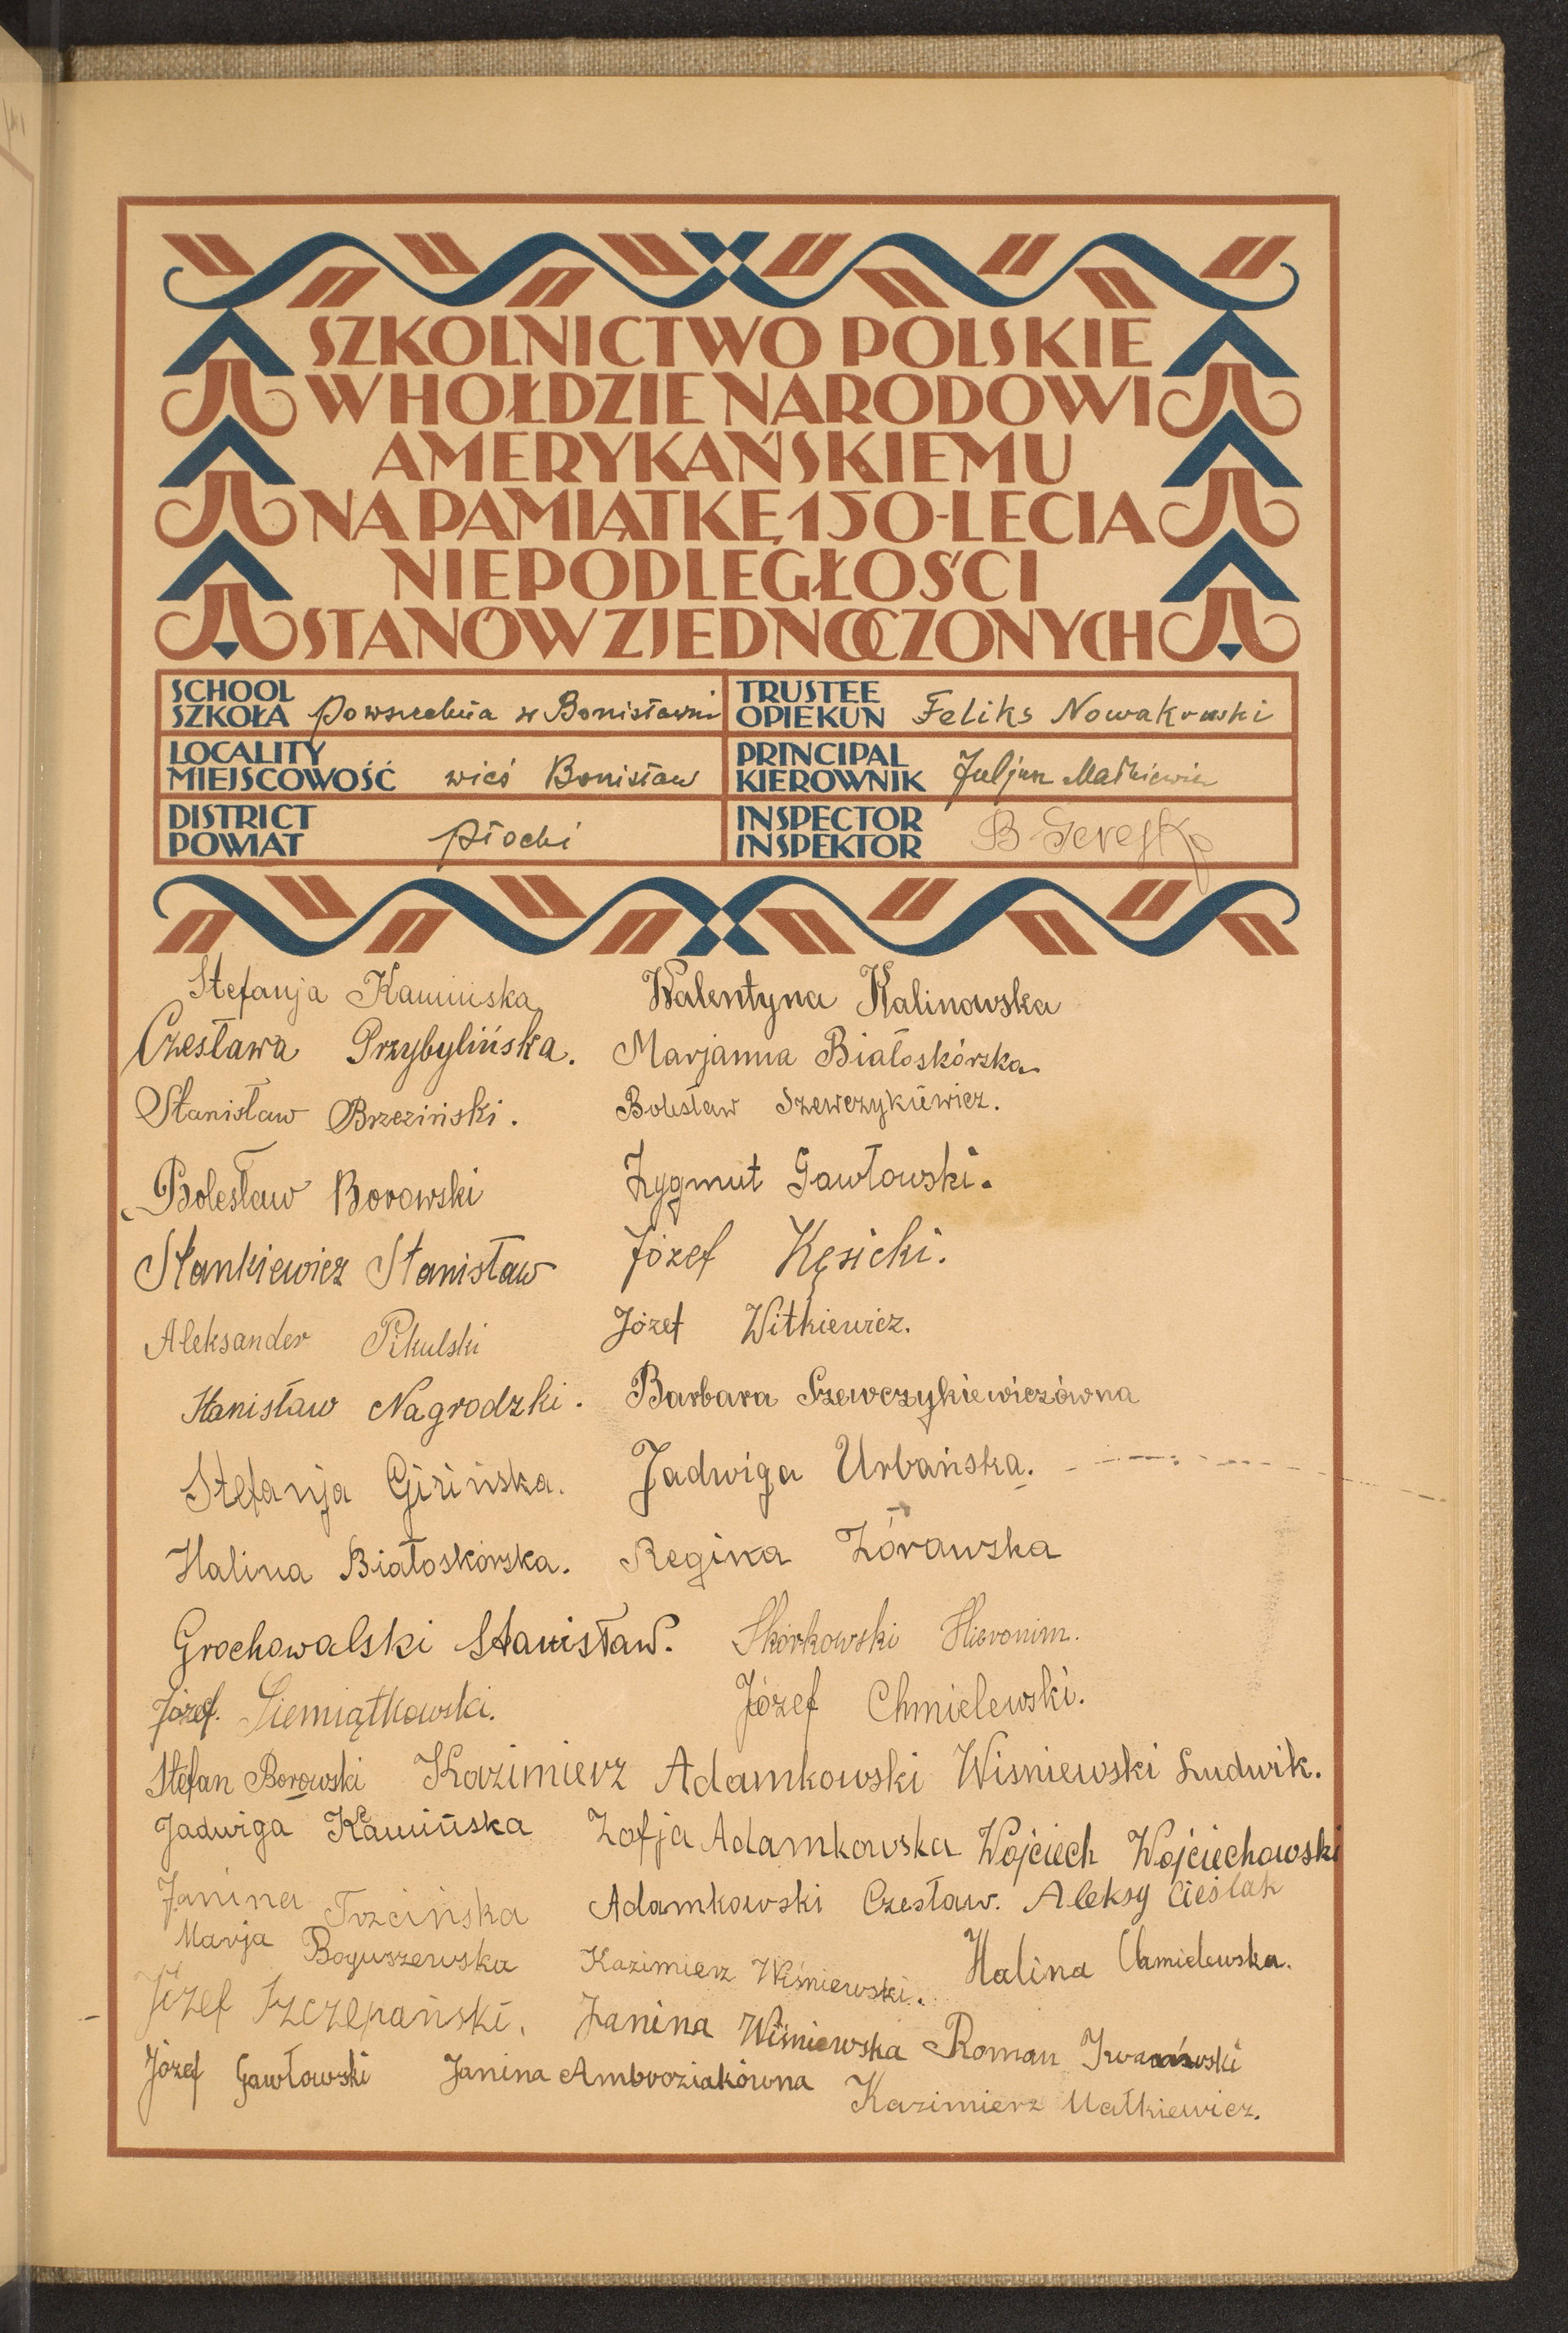 SZKOLNICTWO POLSKIE
W HOŁDZIE NARODOWI
AMERYKAŃSKIEMU
NA PAMIĄTKĘ 150-LECIA
NIEPODLEGŁOŚCI
STANÓW ZJEDNOCZONYCH
SCHOOL
SZKOŁA Powszechna w Bonisławiu
TRUSTEE
OPIEKUN Feliks Nowakowski
LOCALITY
MIEJSCOWOŚĆ wieś Bonisław
PRINCIPAL
KIEROWNIK Juljan Małkiewicz
DISTRICT
POWIAT płocki
INSPECTOR
INSPEKTOR B
Stefanja Kamińska Walentyna Kalinowska
Czesława Przybylińska. Marjanna Białoskórska
Stanisław Brzeziński. Bolesław Szewczykiewicz.
Bolesław Borowski Zygmut Gawłowski.
Stankiewicz Stanisław Józef Kęsicki.
Aleksander Pikulski Józef Witkiewicz.
Stanisław Nagrodzki. Barbara Szewczykiewiczówna
Stefanja Girińska. Jadwiga Urbańska.
Halina Białoskórska. Regina Żórawska
Grochowalski Stanisław. Skórkowski Hieronim.
Józef. Siemiątkowski. Józef Chmielewski.
Stefan Borowski Kazimierz Adamkowski Wisniewski Ludwik.
Jadwiga Kamińska Zofja Adamkowska Wojciech Wojciechowski
Janina Trzcińska Adamkowski Czesław. Aleksy Cieślak
Marja Boguszewska Kazimierz Wiśniewski. Halina Chmielewska.
Józef Szczepański. Janina Wiśniewska Roman
Józef Gawłowski Janina Ambroziakówna Kazimierz Małkiewicz.